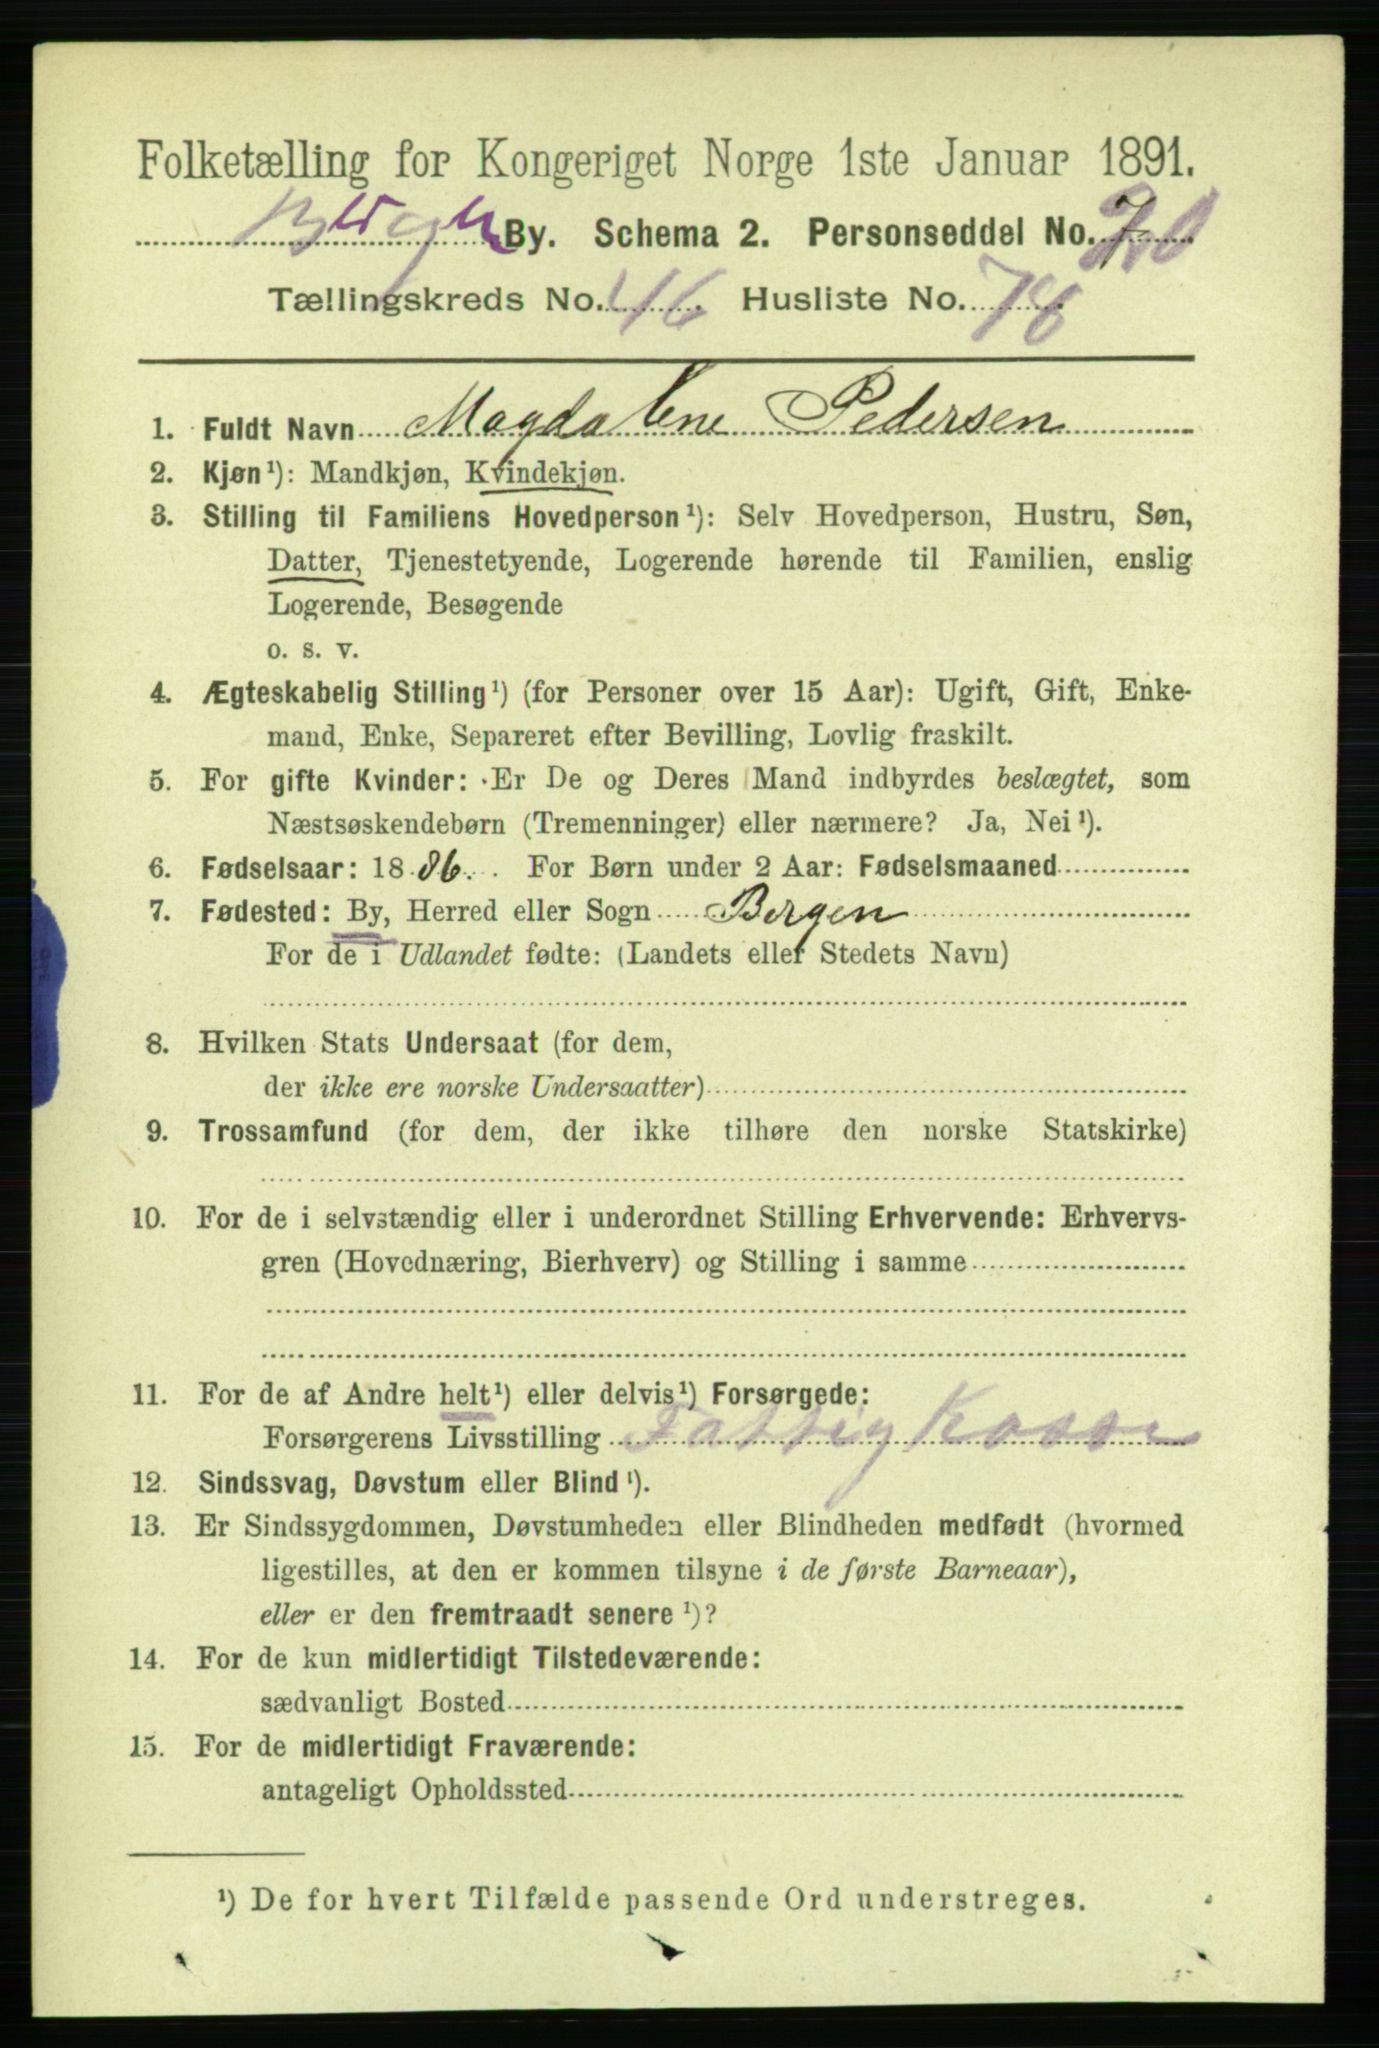 Folketælling for Kongeriget Norge 1ste Januar 1891.
By. Schema 2. Personseddel No. 7
Tællingskreds No. 46 Husliste No. 78
1. Fuldt Navn Magdalene Pedersen
2. Kjøn¹): Mandkjøn, Kvindekjøn.
3. Stilling til Familiens Hovedperson¹): Selv Hovedperson, Hustru, Søn,
Datter, Tjenestetyende, Logerende hørende til Familien, enslig
Logerende, Besøgende
o. s. v.
4. Ægteskabelig Stilling¹) (for Personer over 15 Aar): Ugift, Gift, Enke-
mand, Enke, Separeret efter Bevilling, Lovlig fraskilt.
5. For gifte Kvinder: Er De og Deres Mand indbyrdes beslægtet, som
Næstsøskendebørn (Tremenninger) eller nærmere? Ja, Nei¹).
6. Fødselsaar: 1886. For Børn under 2 Aar: Fødselsmaaned
7. Fødested: By, Herred eller Sogn Bergen
For de i Udlandet fødte: (Landets eller Stedets Navn)
8. Hvilken Stats Undersaat (for dem,
der ikke ere norske Undersaatter)
9. Trossamfund (for dem, der ikke tilhøre den norske Statskirke)
10. For de i selvstændig eller i underordnet Stilling Erhvervende: Erhvervs-
gren (Hovednæring, Bierhverv) og Stilling i samme
11. For de af Andre helt¹) eller delvis¹) Forsørgede:
Forsørgerens Livsstilling Fattigkasse
12. Sindssvag, Døvstum eller Blind¹).
13. Er Sindssygdommen, Døvstumheden eller Blindheden medfødt (hvormed
ligestilles, at den er kommen tilsyne i de første Barneaar),
eller er den fremtraadt senere¹)?
14. For de kun midlertidigt Tilstedeværende:
sædvanligt Bosted
15. For de midlertidigt Fraværende:
antageligt Opholdssted
¹) De for hvert Tilfælde passende Ord understreges.